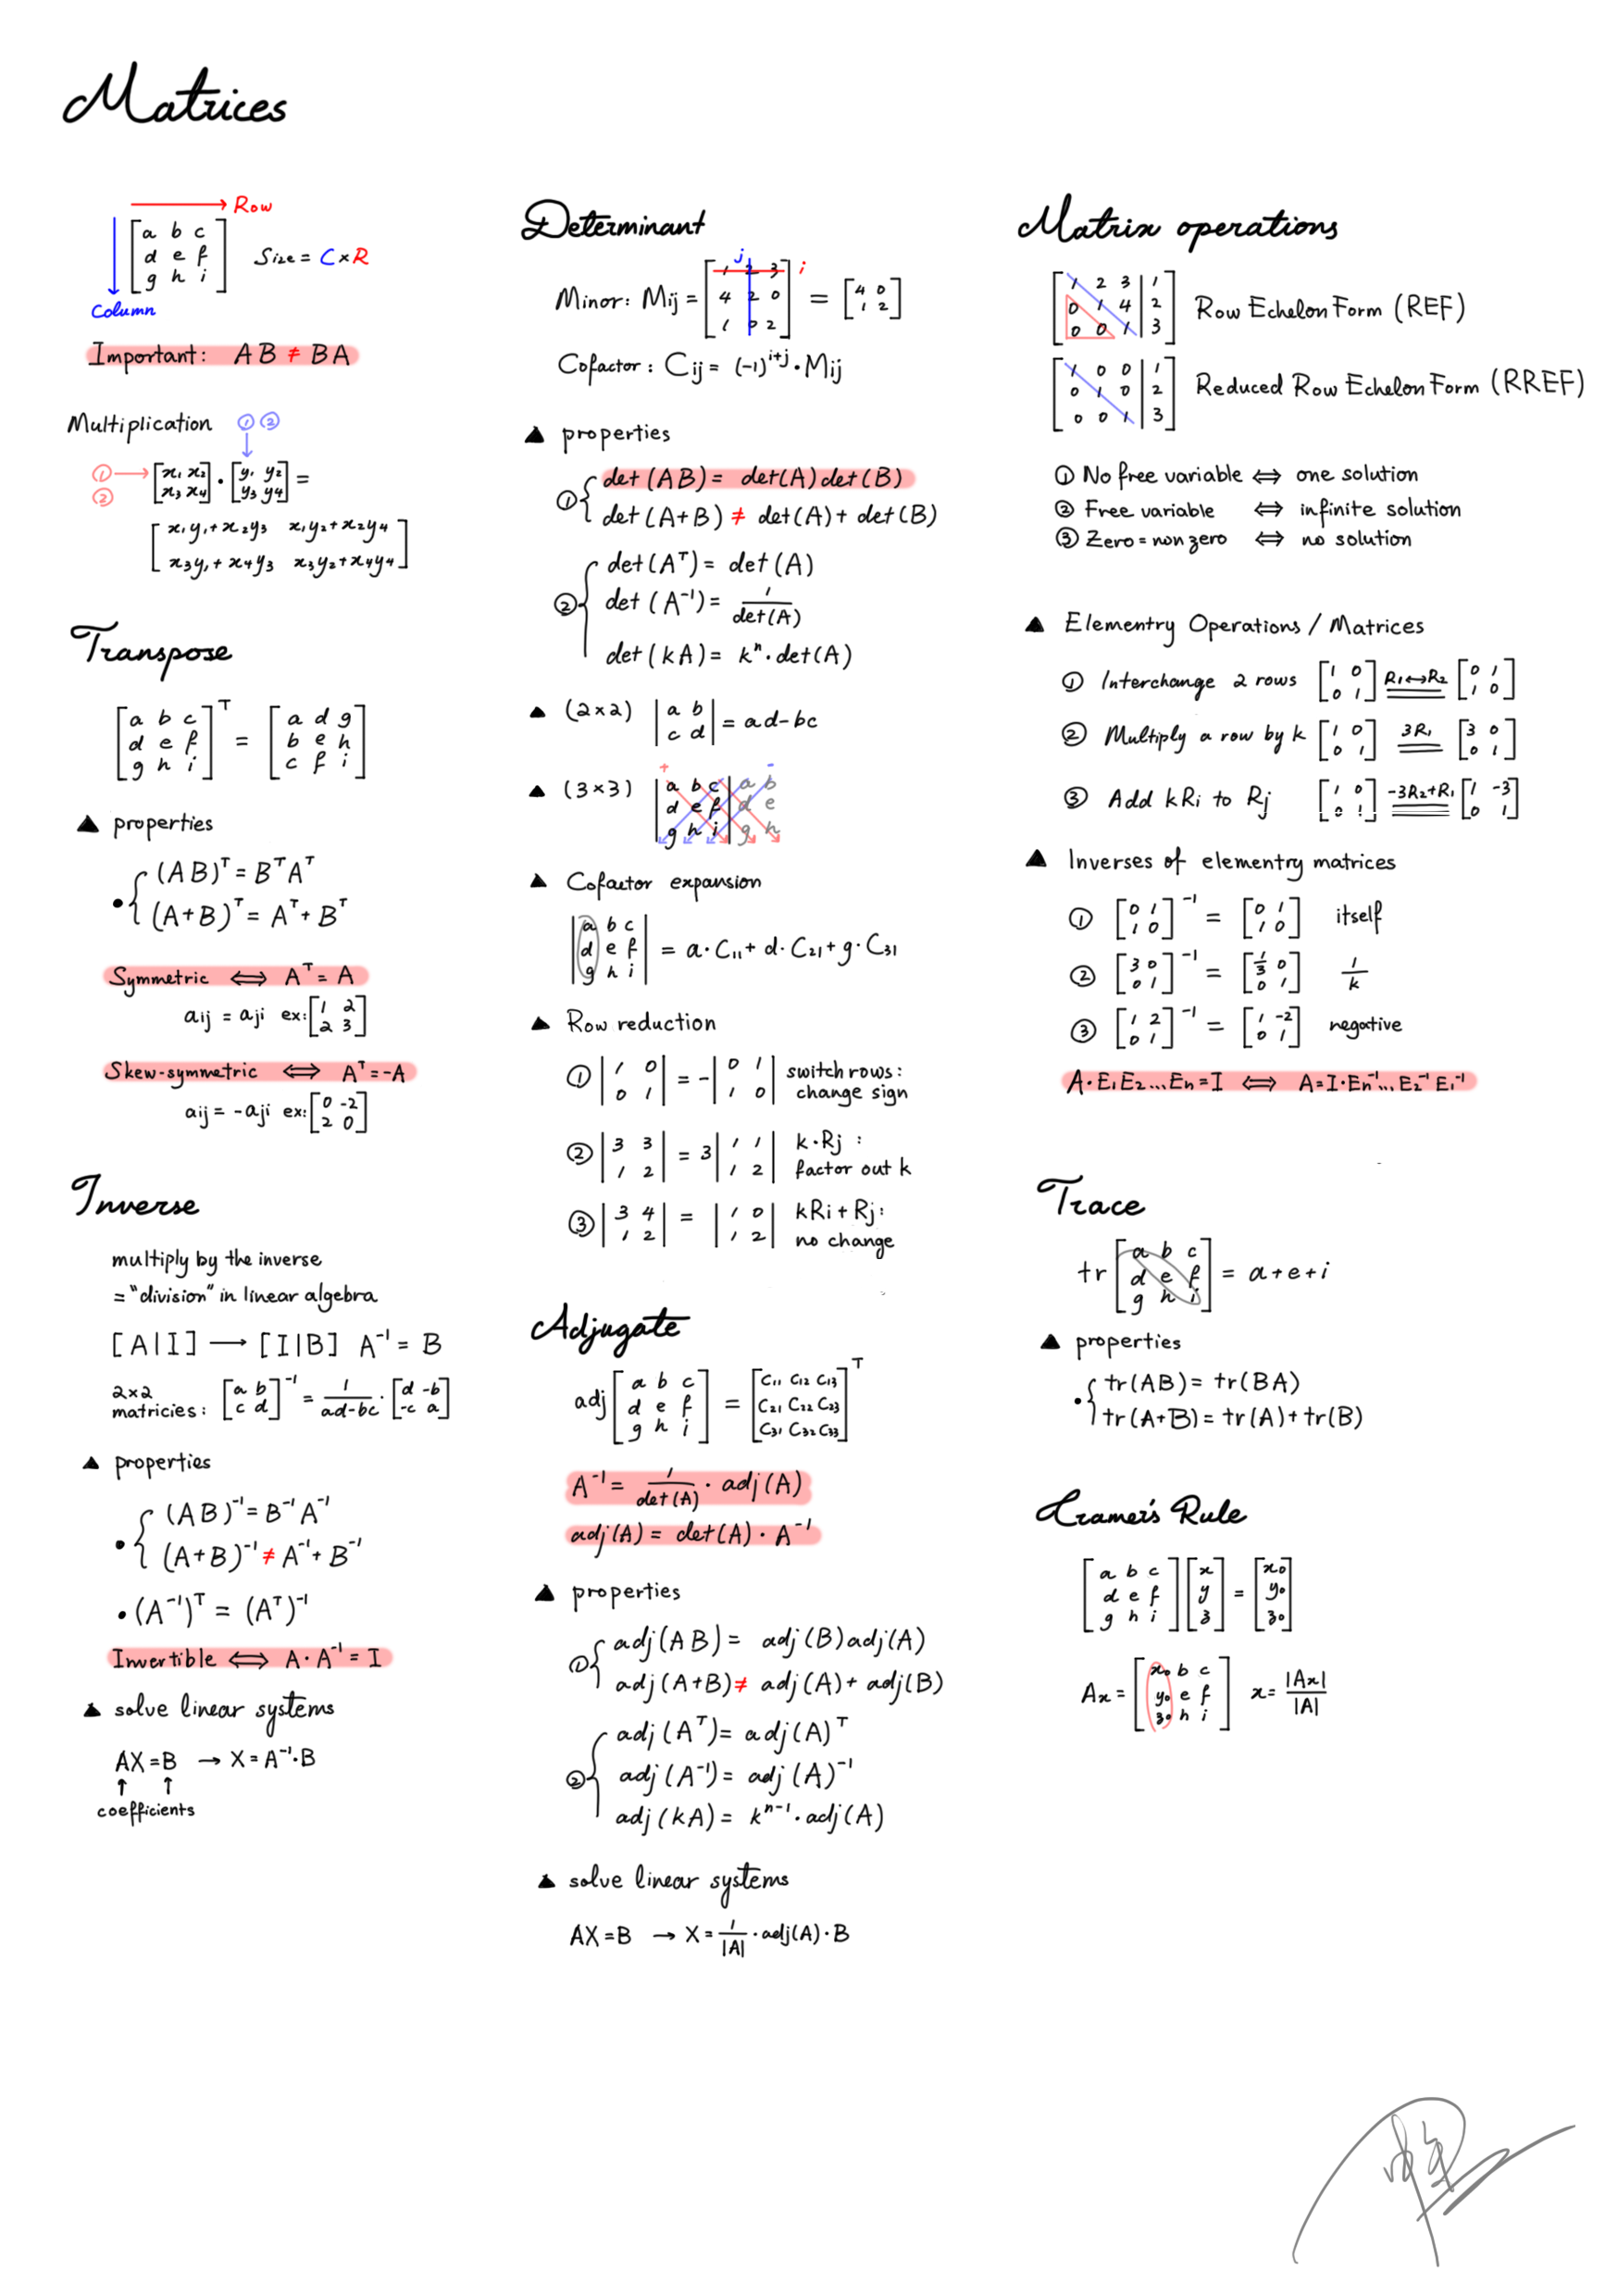 Matrices
Row
[a b c
d e f
g h i]
Size = C × R
Column
Important: AB ≠ BA
Multiplication ① ②
① → [x₁ x₂
② x₃ x₄] · [y₁ y₂
y₃ y₄] =
[x₁y₁+x₂y₃ x₁y₂+x₂y₄
x₃y₁+x₄y₃ x₃y₂+x₄y₄]
Transpose
[a b c
d e f
g h i]ᵀ = [a d g
b e h
c f i]
▲ properties
• { (AB)ᵀ = BᵀAᵀ
(A+B)ᵀ = Aᵀ+Bᵀ
Symmetric ⟺ Aᵀ = A
aij = aji ex: [1 2
2 3]
Skew-symmetric ⟺ Aᵀ = -A
aij = -aji ex: [0 -2
2 0]
Inverse
multiply by the inverse
= "division" in linear algebra
[A|I] → [I|B] A⁻¹ = B
2×2
matricies: [a b
c d]⁻¹ = 1/(ad-bc) · [d -b
-c a]
▲ properties
• { (AB)⁻¹ = B⁻¹A⁻¹
(A+B)⁻¹ ≠ A⁻¹+B⁻¹
• (A⁻¹)ᵀ = (Aᵀ)⁻¹
Invertible ⟺ A·A⁻¹ = I
▲ solve linear systems
AX = B → X = A⁻¹·B
↑ ↑
coefficients
Determinant
j
Minor: Mij = [1 2 3
4 2 0
1 0 2] i = [4 0
1 2]
Cofactor: Cij = (-1)ⁱ⁺ʲ·Mij
▲ properties
① { det(AB) = det(A)det(B)
det(A+B) ≠ det(A)+det(B)
② { det(Aᵀ) = det(A)
det(A⁻¹) = 1/det(A)
det(kA) = kⁿ·det(A)
▲ (2×2) |a b
c d| = ad-bc
+ -
▲ (3×3) |a b c| a b
|d e f| d e
|g h i| g h
▲ Cofactor expansion
|a b c
d e f
g h i| = a·C₁₁ + d·C₂₁ + g·C₃₁
▲ Row reduction
① |1 0
0 1| = -|0 1
1 0| switch rows:
change sign
② |3 3
1 2| = 3|1 1
1 2| k·Rj :
factor out k
③ |3 4
1 2| = |1 0
1 2| kRi + Rj:
no change
Adjugate
adj [a b c
d e f
g h i] = [C₁₁ C₁₂ C₁₃
C₂₁ C₂₂ C₂₃
C₃₁ C₃₂ C₃₃]ᵀ
A⁻¹ = 1/det(A) · adj(A)
adj(A) = det(A) · A⁻¹
▲ properties
① { adj(AB) = adj(B)adj(A)
adj(A+B) ≠ adj(A)+adj(B)
② { adj(Aᵀ) = adj(A)ᵀ
adj(A⁻¹) = adj(A)⁻¹
adj(kA) = kⁿ⁻¹·adj(A)
▲ solve linear systems
AX = B → X = 1/|A| · adj(A) · B
Matrix operations
[1 2 3 | 1
0 1 4 | 2
0 0 1 | 3] Row Echelon Form (REF)
[1 0 0 | 1
0 1 0 | 2
0 0 1 | 3] Reduced Row Echelon Form (RREF)
① No free variable ⟺ one solution
② Free variable ⟺ infinite solution
③ Zero = non zero ⟺ no solution
▲ Elementry Operations / Matrices
① Interchange 2 rows [1 0
0 1] R₁↔R₂ [0 1
1 0]
② Multiply a row by k [1 0
0 1] 3R₁ [3 0
0 1]
③ Add kRi to Rj [1 0
0 1] -3R₂+R₁ [1 -3
0 1]
▲ Inverses of elementry matrices
① [0 1
1 0]⁻¹ = [0 1
1 0] itself
② [3 0
0 1]⁻¹ = [1/3 0
0 1] 1/k
③ [1 2
0 1]⁻¹ = [1 -2
0 1] negative
A·E₁E₂...En = I ⟺ A = I·En⁻¹...E₂⁻¹E₁⁻¹
Trace
tr [a b c
d e f
g h i] = a+e+i
▲ properties
• { tr(AB) = tr(BA)
tr(A+B) = tr(A)+tr(B)
Cramer's Rule
[a b c
d e f
g h i] [x
y
z] = [x₀
y₀
z₀]
Ax = [x₀ b c
y₀ e f
z₀ h i] x = |Ax|/|A|